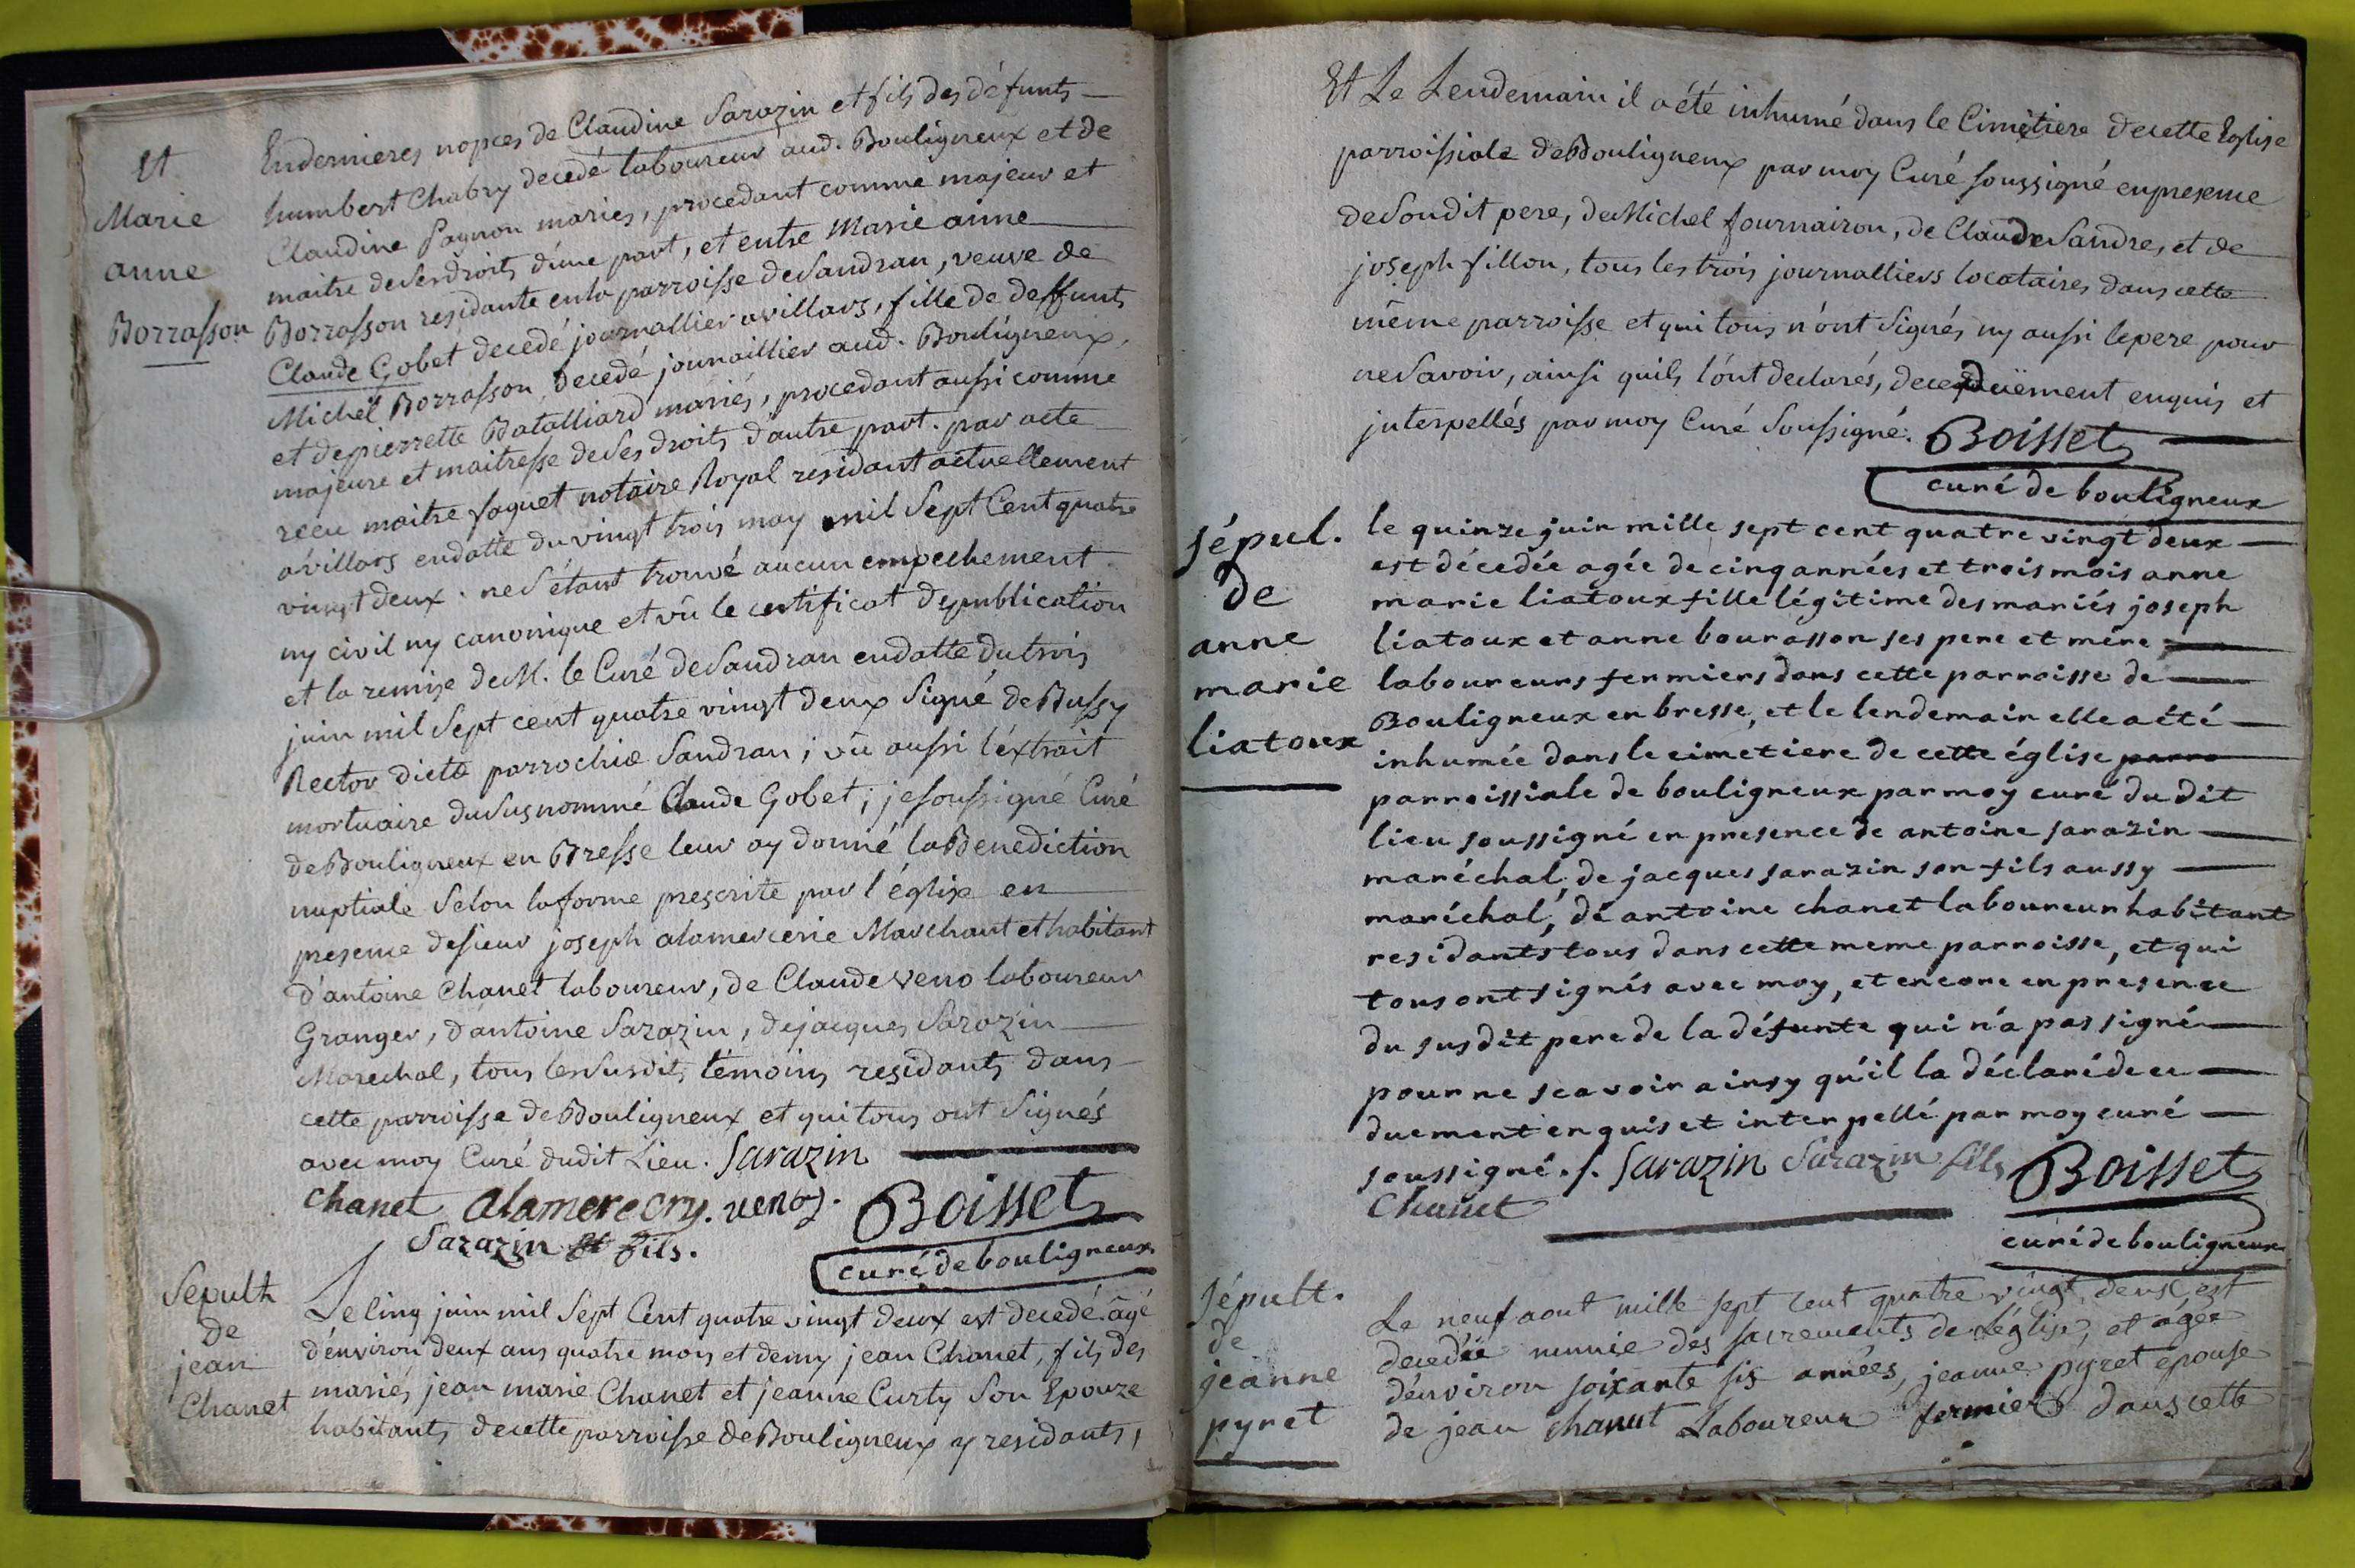 Et
Marie
anne
Borrasson
Endernieres nopces de Claudine Sarazin et fils des défunts
humbert Chabry decedé laboureur aud. Bouligneux et de
Claudine Pagnon mariés, procedant comme majeur et
maitre de ses droits d'une part, et entre Marie anne
Borrasson residante en la parroisse de Sandran, veuve de
Claude Gobet decedé journallier a villars, fille de deffunts
Michel Borrasson, decedé journaillier aud. Bouligneux,
et de pierrette Batalliard mariés, procedant aussi comme
majeure et maitresse de ses droits d'autre part. par acte
recu maitre faguet notaire Royal residant actuellement
a villars en datte du vingt trois may mil Sept Cent quatre
vingt deux. ne s'étant trouvé aucun empechement
ny civil ny canonique et vû le certificat de publication
et la remise de M. le Curé de Sandran en datte du trois
juin mil Sept cent quatre vingt deux Signé de Bussy
Rector dictæ parrochiæ Sandran; vû aussi l'extrait
mortuaire du susnommé Claude Gobet; je soussigné Curé
de Bouligneux en Bresse leur ay donné la Benediction
nuptiale Selon la forme prescrite par l'église en
presence de sieur joseph alamercerie Marchant et habitant
d'antoine Chanet laboureur, de Claude veno laboureur
Granger, d'antoine Sarazin, de jacques Sarazin
Marechal, tous les susdits témoins residants dans
cette parroisse de Bouligneux et qui tous ont Signés
avec moy Curé dudit Lieu. Sarazin
chanet Alamerecery. venos. Boisset
Sarazin fils. curé de bouligneux
Sepult
de
jean
Chanet
Le cinq juin mil Sept Cent quatre vingt deux est decedé âgé
d'environ deux ans quatre mois et demy jean Chanet, fils des
mariés jean marie Chanet et jeanne Curty Son Epouze
habitants de cette parroisse de Bouligneux y residants,
Et Le Lendemain il a été inhumé dans le Cimetiere de cette Eglise
parroissiale de Bouligneux par moy Curé soussigné en presence
de Son dit pere, de Michel fournairon, de Claude Sandre, et de
joseph fillon, tous les trois journalliers locataires dans cette
même parroisse et qui tous n'ont Signés ny aussi le pere pour
ne Savoir, ainsi quils l'ont declarés, de ce duëment enquis et
interpellés par moy Curé Soussigné. Boisset
curé de bouligneux
sépul.
de
anne
marie
liatoux
le quinze juin mille sept cent quatre vingt deux
est décedée agée de cinq années et trois mois anne
marie liatoux fille légitime des mariés joseph
liatoux et anne bourasson ses pere et mére
laboureurs fermiers dans cette parroisse de
Bouligneux en bresse, et le lendemain elle a été
inhumée dans le cimetiere de cette église parro
parroissiale de bouligneux par moy curé du dit
lieu soussigné en presence de antoine sarazin
maréchal, de jacques sarazin son fils aussy
maréchal, de antoine chanet laboureur habitant
residants tous dans cette meme parroisse, et qui
tous ont signés avec moy, et encore en presence
du susdit pere de la défunte qui n'a pas signé
pour ne scavoir ainsy qu'il la déclaré de ce
duement enquis et interpellé par moy curé
soussigné./. Sarazin Sarazin fils Boisset
Chanet
curé de bouligneux
sépult.
de
jeanne
pyret
Le neuf aout mille sept cent quatre vingt deux est
decedée munie des sacrements de l'église, et agée
d'environ soixante six années, jeanne pyret epouse
de jean chanut Laboureur fermier dans cette